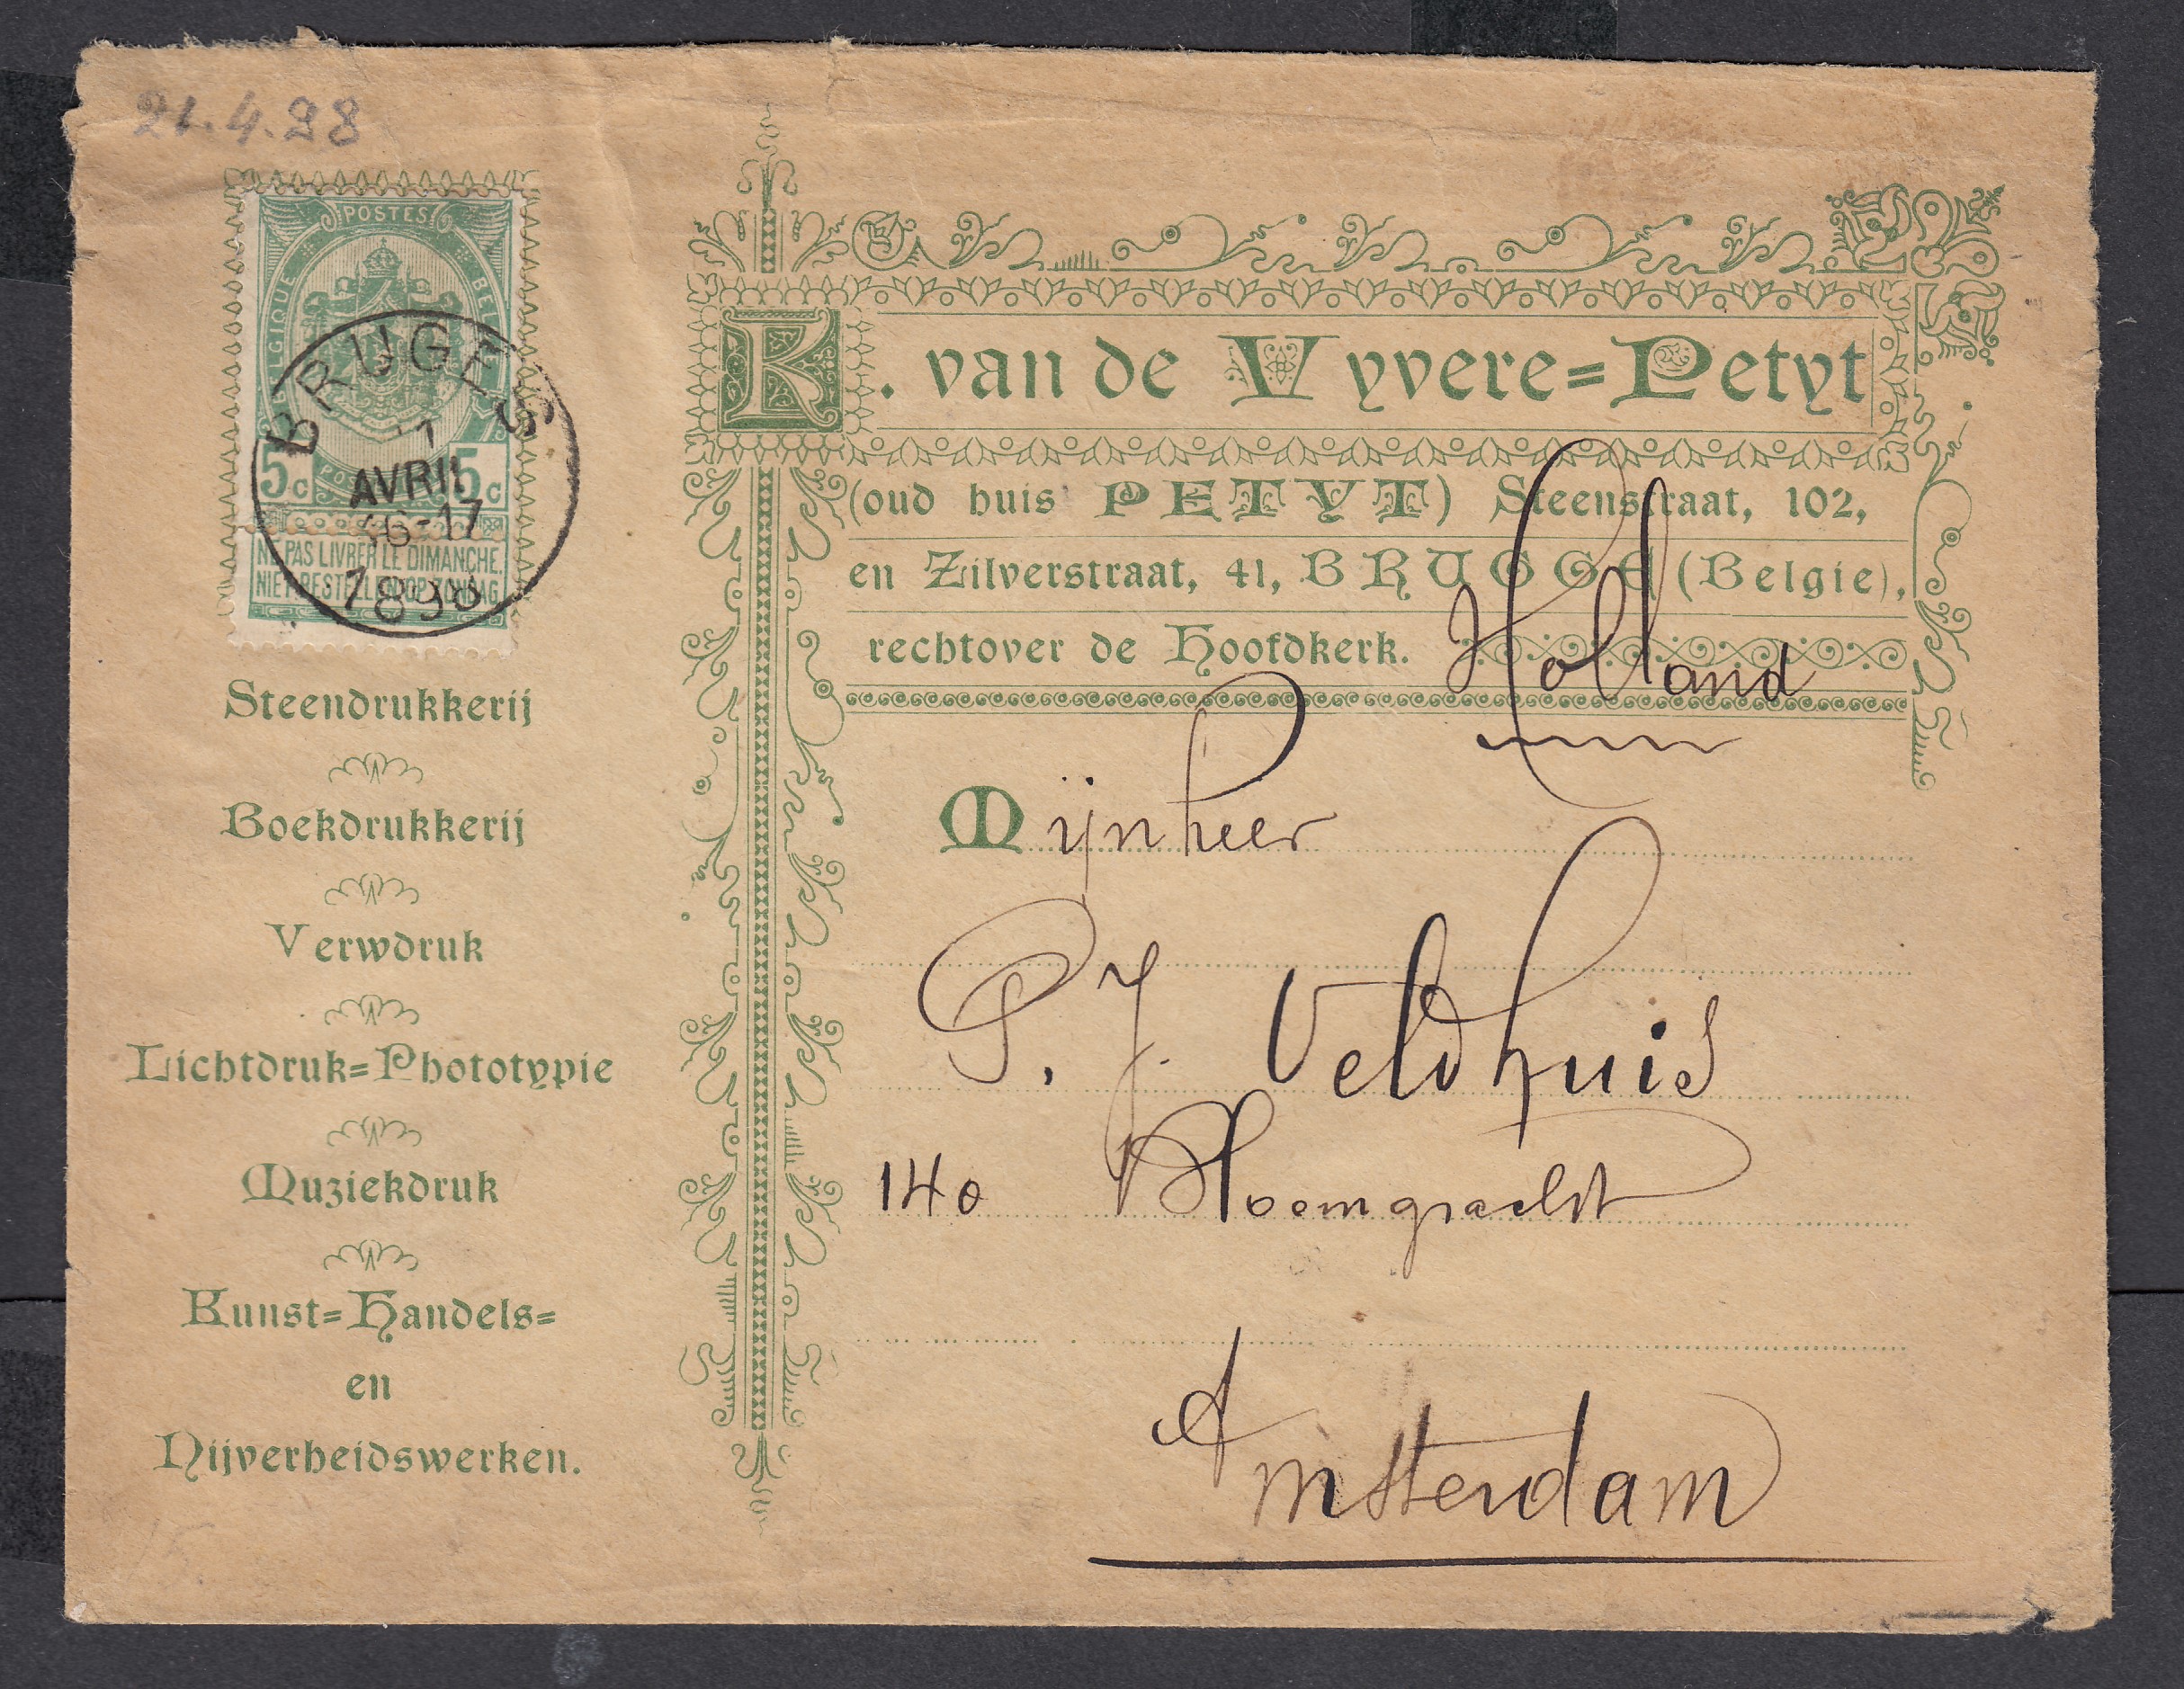 21.4.98
POSTES
BELGIQUE
5c 5c
NE PAS LIVRER LE DIMANCHE.
NIET BESTELLEN OP ZONDAG
BRUGES
AVRIL
16-17
1898
K. van de Vyvere=Petyt
(oud huis PETYT) Steenstraat, 102,
en Zilverstraat, 41, BRUGGE (Belgie),
rechtover de Hoofdkerk.
Holland
Steendrukkerij
Boekdrukkerij
Verwdruk
Lichtdruk=Phototypie
Muziekdruk
Kunst=Handels=
en
Nijverheidswerken.
Mijnheer
P. J. Veldhuis
140 Bloemgracht
Amsterdam